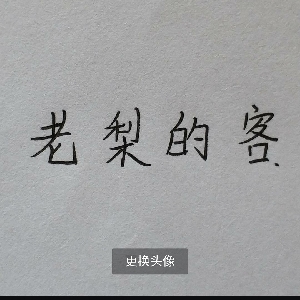 老梨的客
更换头像